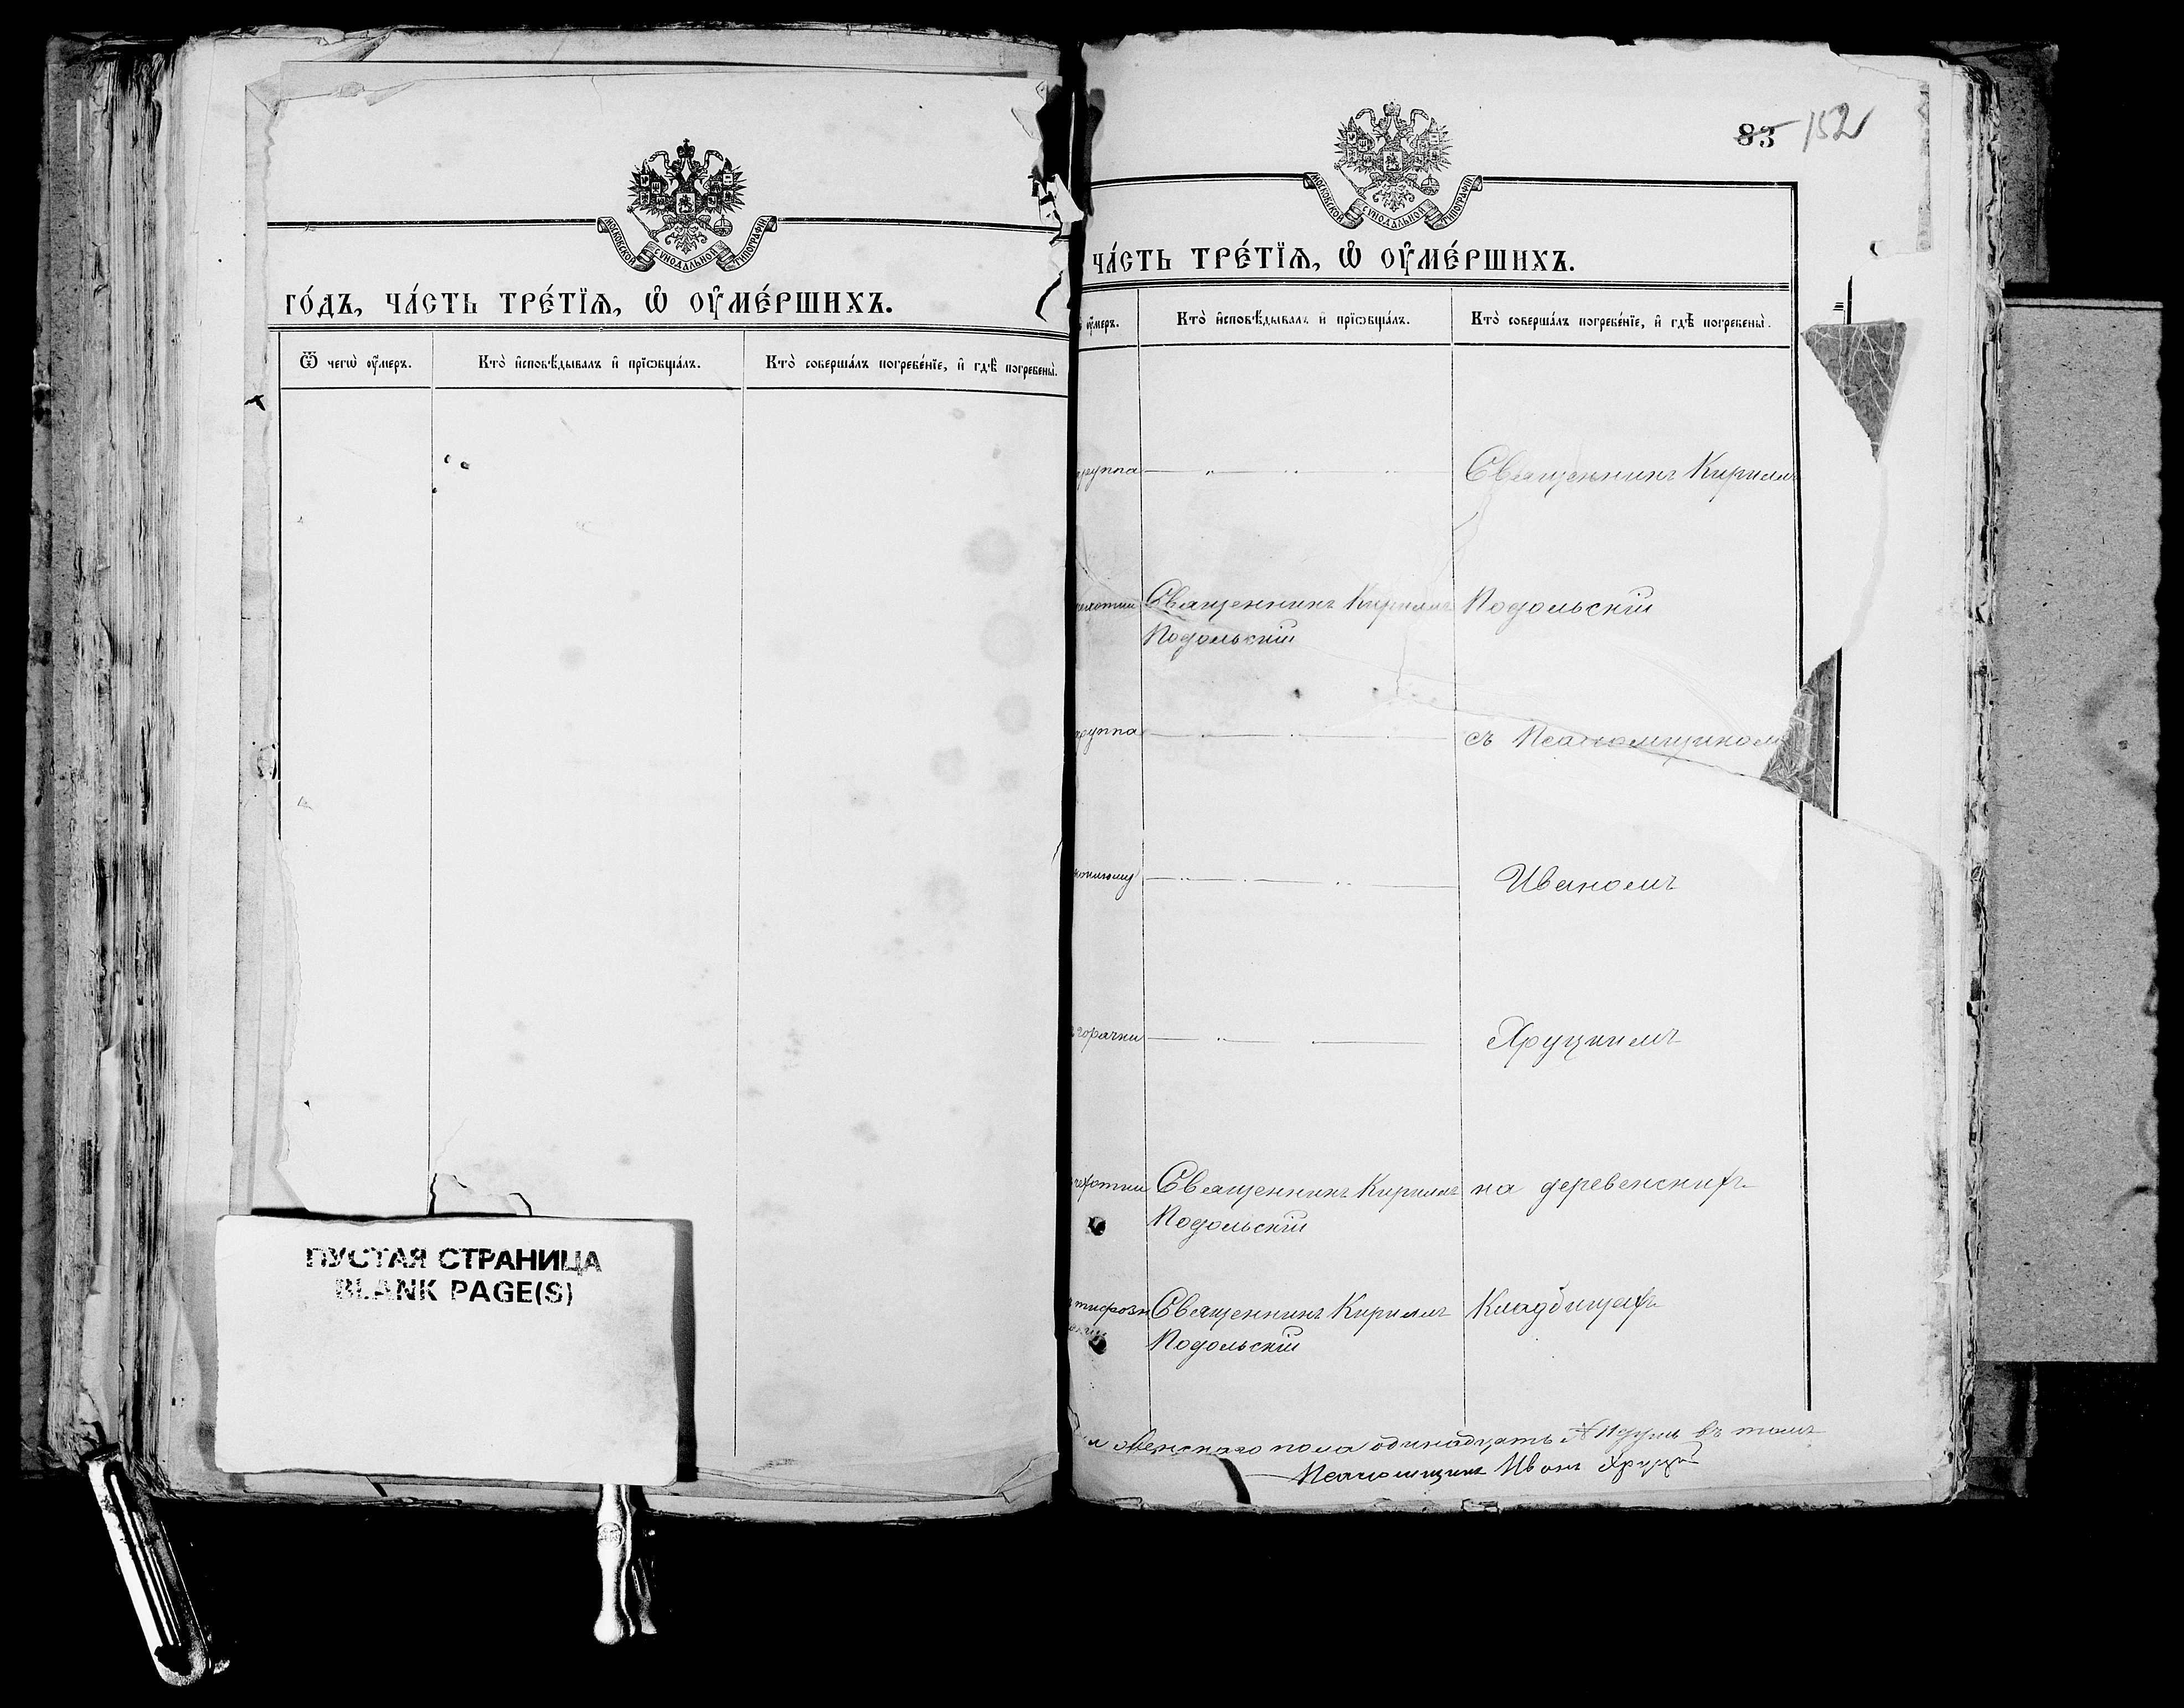 МОСКОВСКОЙ СѴНОДАЛЬНОЙ ТИПОГРАФІИ
ГО́ДЪ, ЧА́СТЬ ТРЕ́ТЇѦ, Ѡ҆ ОУ҆МЕ́РШИХЪ.
Ѿ чегѡ̀ оу҆́меръ.
Кто̀ и҆сповѣ́дывалъ и҆ прїѡбща́лъ.
Кто̀ соверша́лъ погребе́нїе, и҆ гдѣ̀ погребены̀.
ПУСТАЯ СТРАНИЦА
BLANK PAGE(S)
83 152
МОСКОВСКОЙ СѴНОДАЛЬНОЙ ТИПОГРАФІИ
ЧА́СТЬ ТРЕ́ТЇѦ, Ѡ҆ ОУ҆МЕ́РШИХЪ.
оу҆́меръ.
Кто̀ и҆сповѣ́дывалъ и҆ прїѡбща́лъ.
Кто̀ соверша́лъ погребе́нїе, и҆ гдѣ̀ погребены̀.
круппа Священникъ Кириллъ
чахотки Священникъ Кириллъ Подольскій
Подольскій
круппа съ Псаломщикомъ
Иваномъ
горячки Хруцкимъ
чахотки Священникъ Кириллъ на деревенскихъ
Подольскій
тифозн Священникъ Кириллъ Кладбищахъ
Подольскій
и женскаго пола одинадцать въ томъ
Псаломщикъ Иванъ Хруцкій